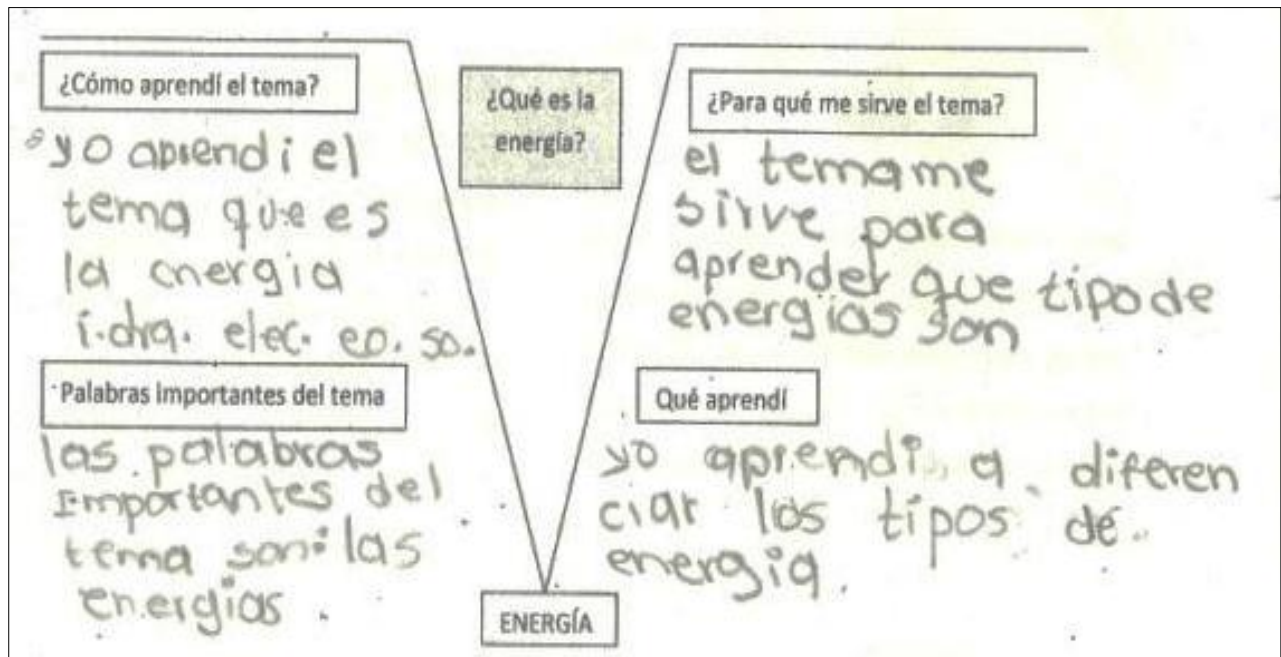 ¿Cómo aprendí el tema?
yo aprendi el
tema que es
la energia
i.dra. elec. eo. so.
Palabras importantes del tema
las palabras
Importantes del
tema son: las
energias.
¿Qué es la
energía?
ENERGÍA
¿Para qué me sirve el tema?
el tema me
sirve para
aprender que tipo de
energias son
Qué aprendí
yo aprendi a diferen
ciar los tipos de
energia.